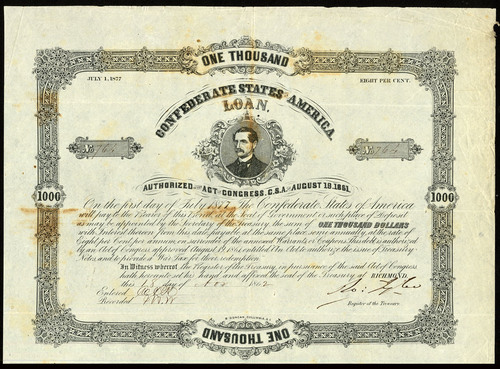 ONE THOUSAND
JULY 1, 1877
EIGHT PER CENT.
CONFEDERATE STATES AMERICA
LOAN.
No 765
No 765
AUTHORIZED ACT CONGRESS, C.S.A. AUGUST 19, 1861.
1000
1000
On the first day of July 1877 The Confederate States of America
will pay to the Bearer of this Bond, at the seat of Government or such place of Deposit
as may be appointed by the Secretary of the Treasury, the sum of ONE THOUSAND DOLLARS
with Interest thereon from this date, payable at the same place, semi-annually, at the rate of
Eight per Cent per annum on surrender of the annexed Warrants or Coupons. This debt is authorized
by an Act of Congress approved August 19, 1861, entitled "An Act to authorize the issue of Treasury
Notes, and to provide a War Tax for their redemption"
In Witness whereof, the Register of the Treasury, in pursuance of the said Act of Congress
hath hereunto set his hand and affixed the seal of the Treasury at RICHMOND,
this day of 1862
Entered
Recorded
Ro: Tyler
Register of the Treasury.
ONE THOUSAND